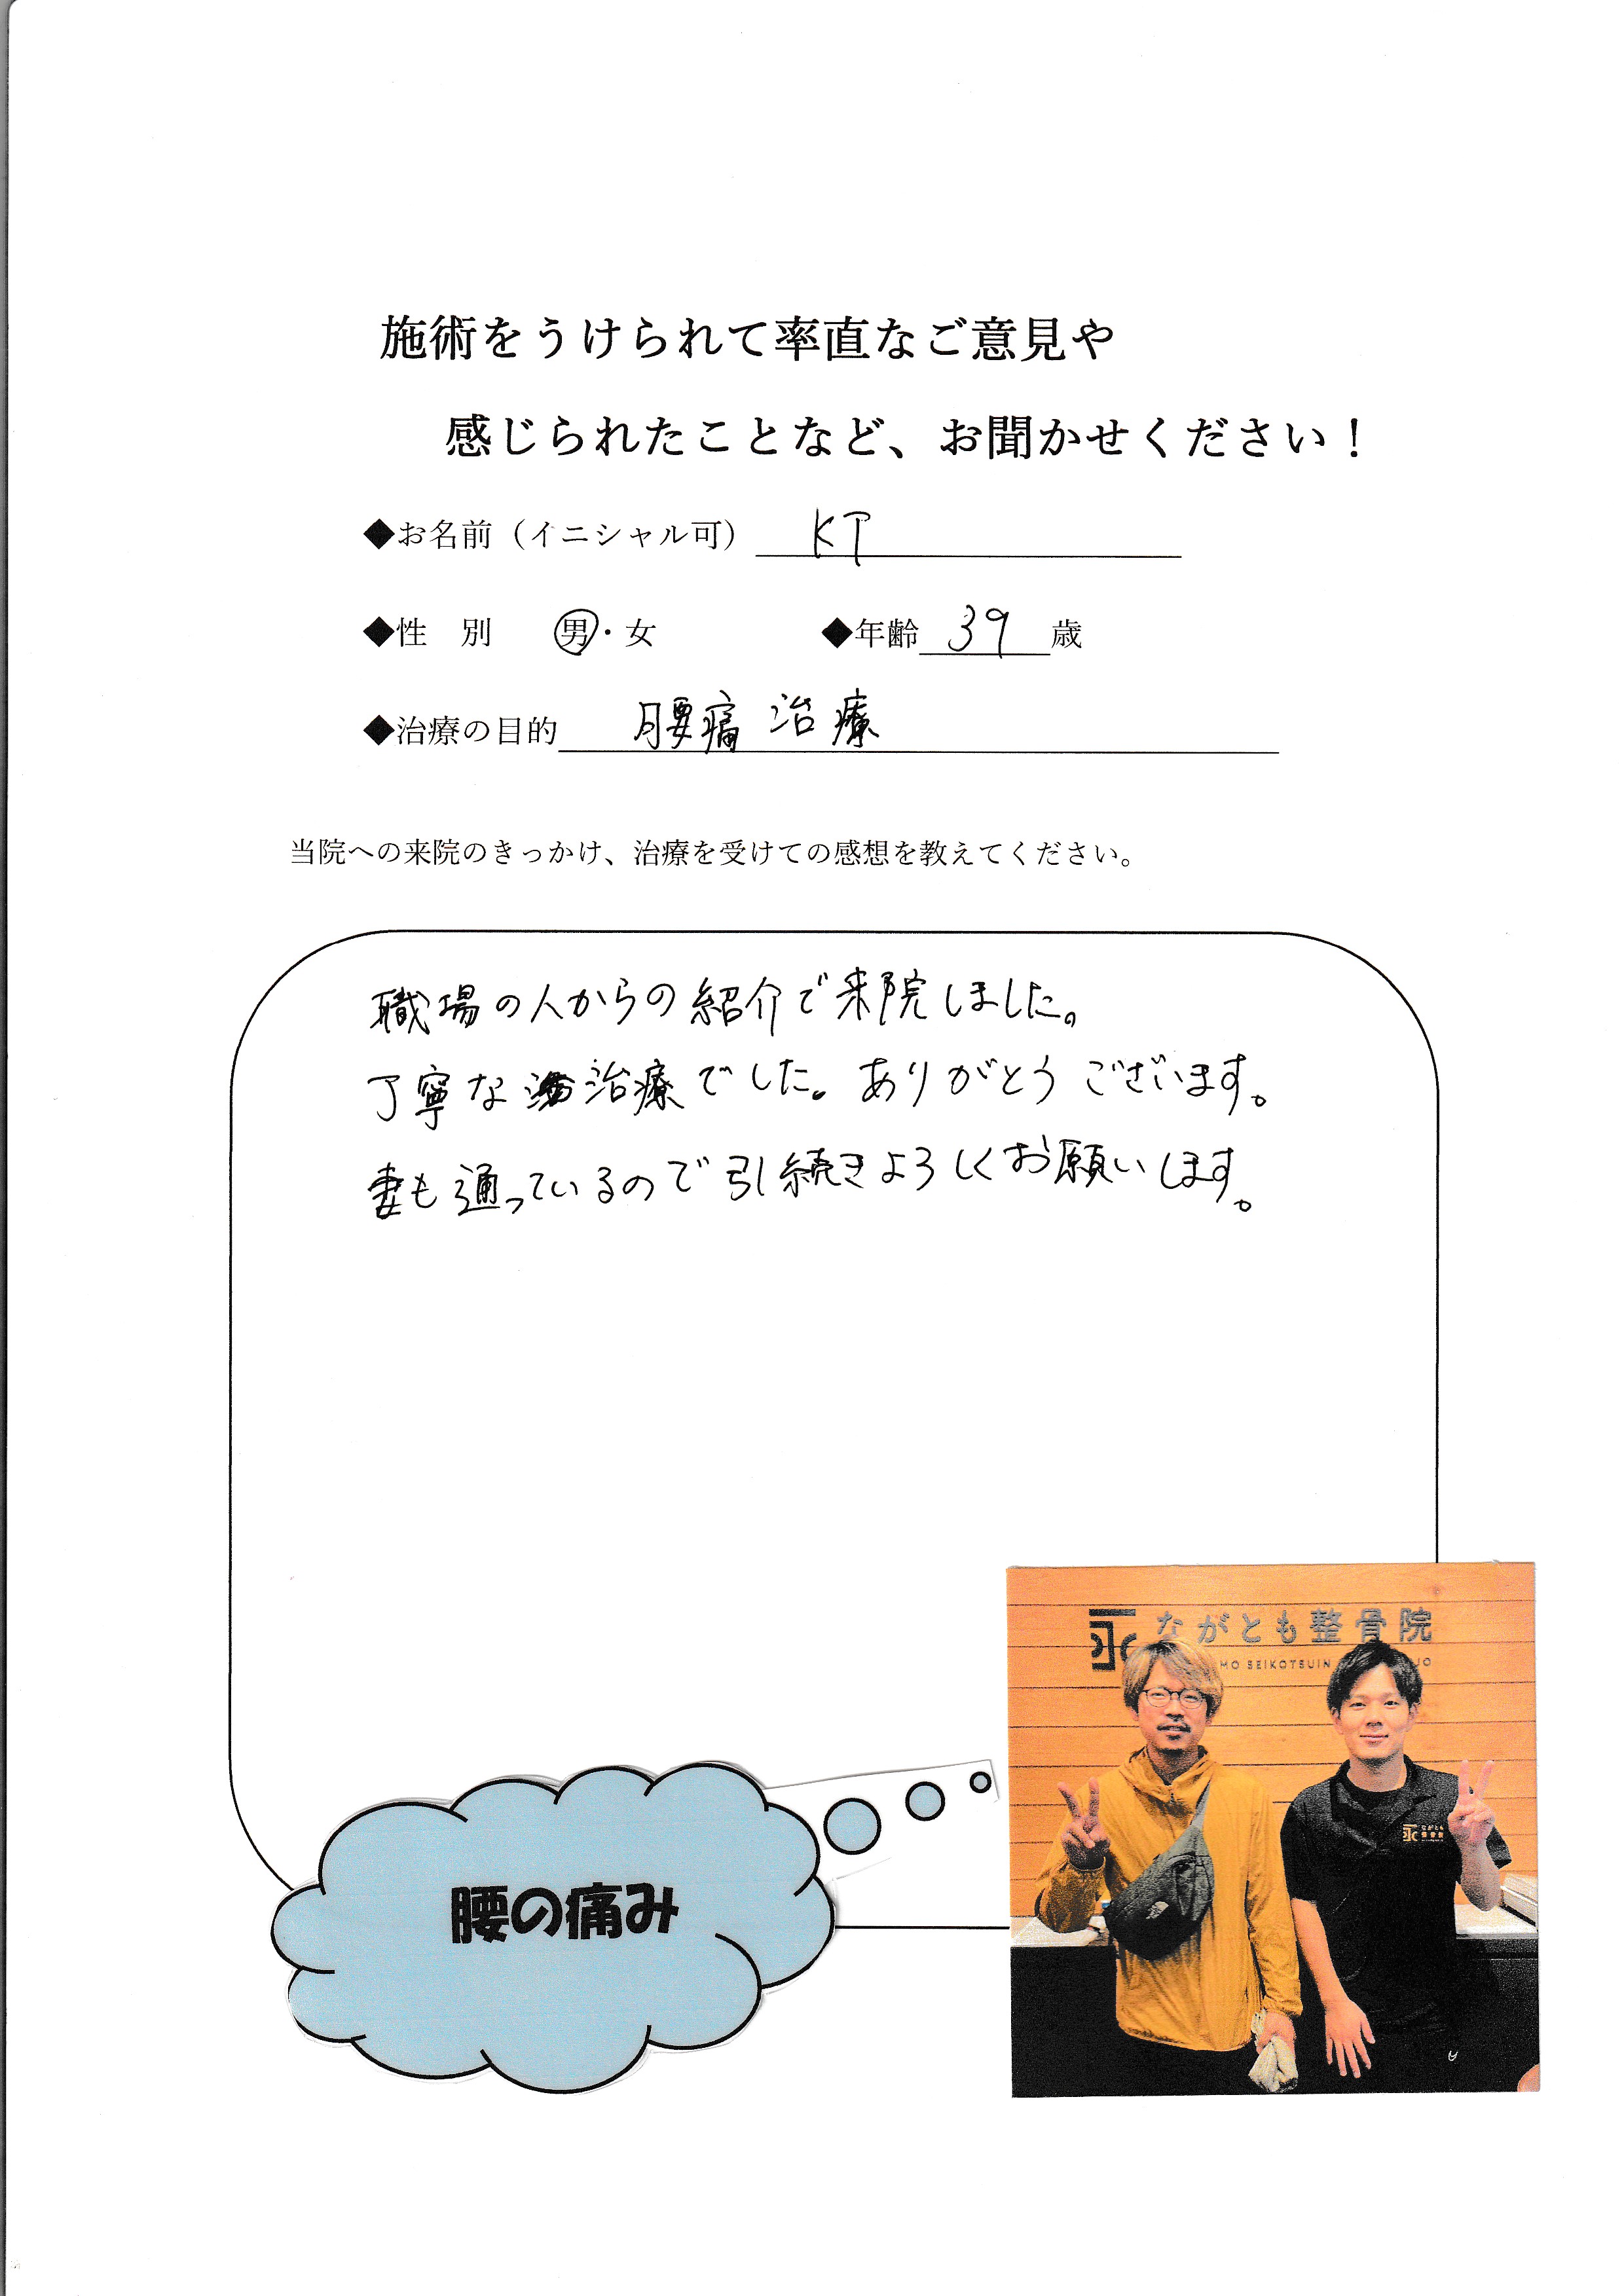 施術をうけられて率直なご意見や
感じられたことなど、お聞かせください！
◆お名前（イニシャル可） KT
◆性 別 男・女 ◆年齢 39 歳
◆治療の目的 腰痛 治療
当院への来院のきっかけ、治療を受けての感想を教えてください。
職場の人からの紹介で来院しました。
丁寧な治療でした。ありがとうございます。
妻も通っているので引続きよろしくお願いします。
ながとも整骨院
MO SEIKOTSUIN
腰の痛み